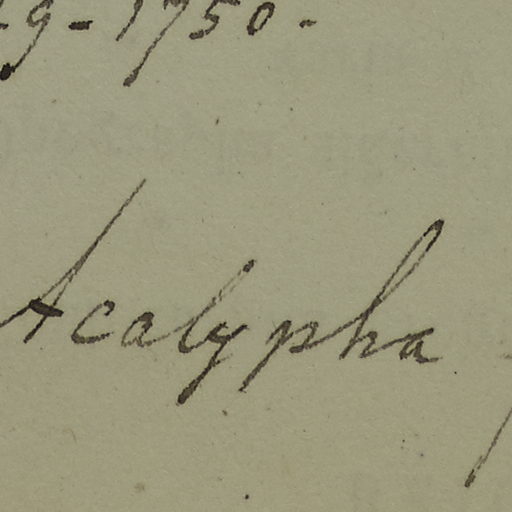 9-1750-
Acalypha